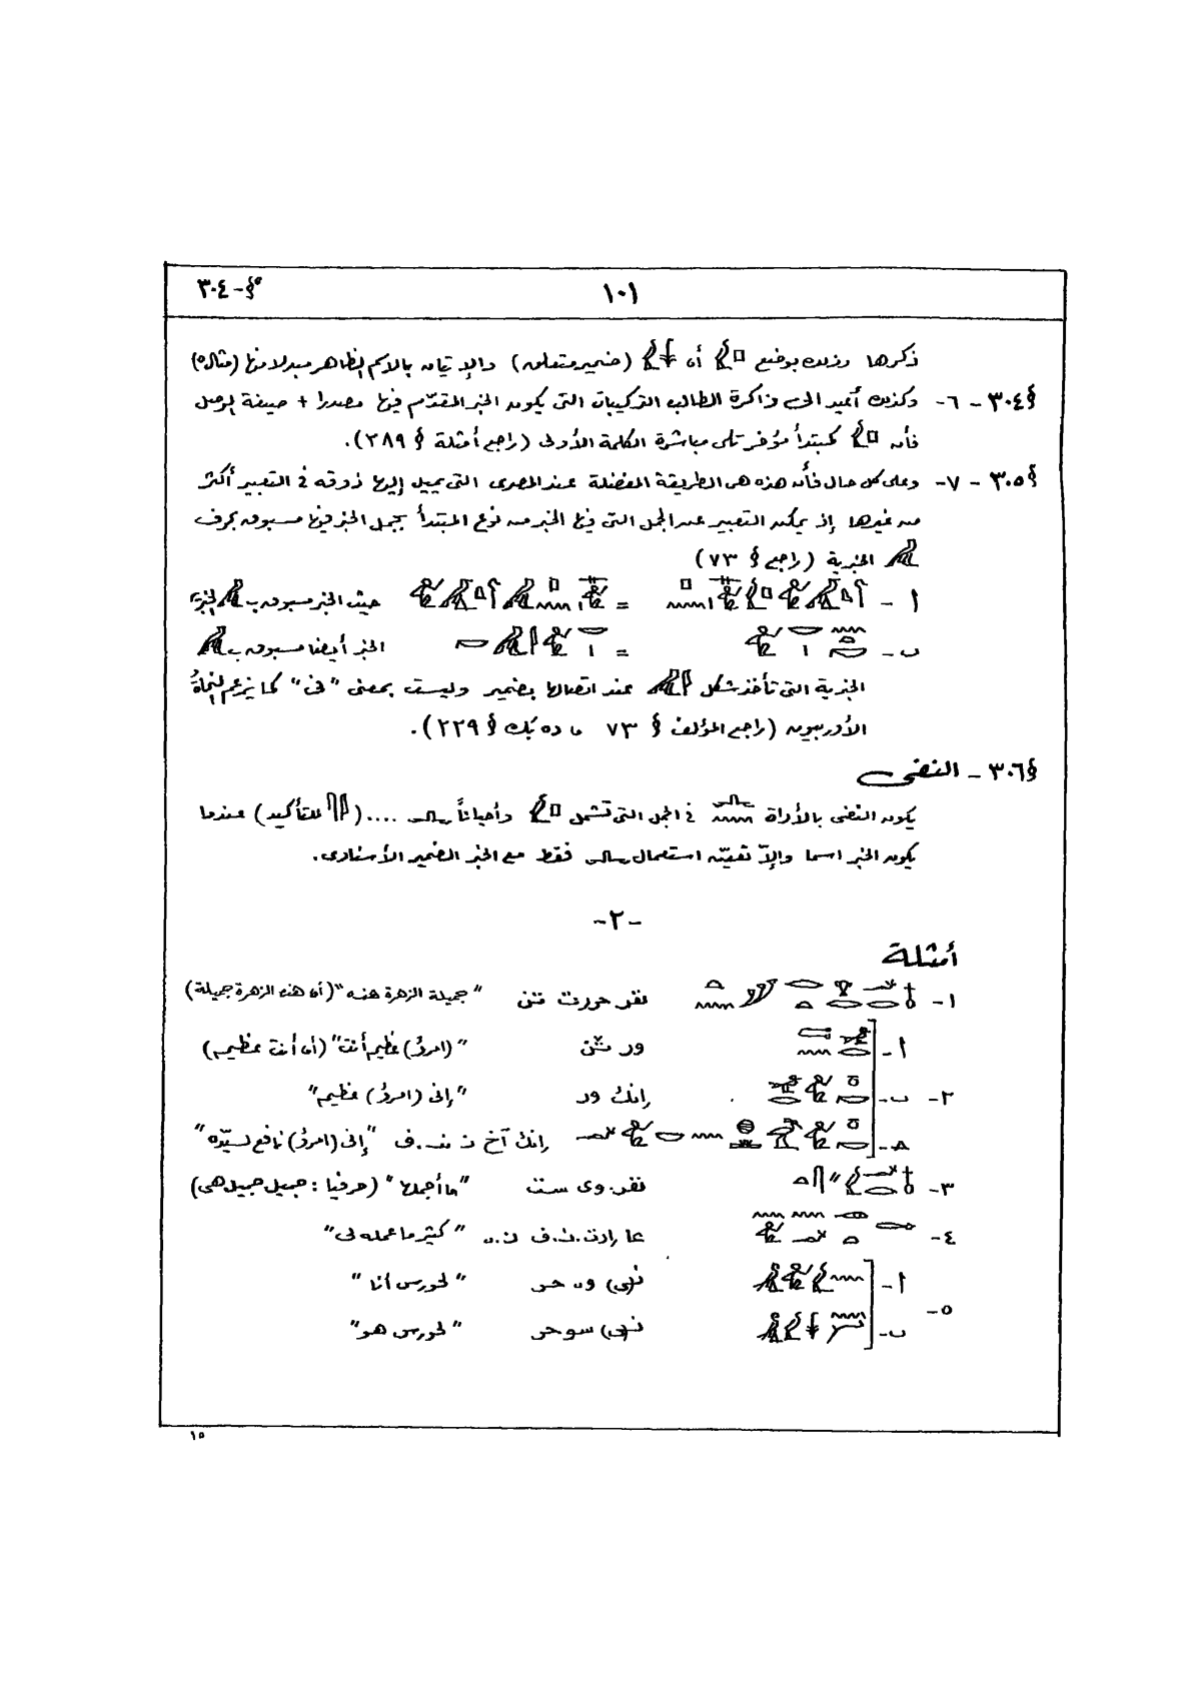 § - ٣٠٤
١٠١
ذكرها وذلك بوضع 𓊪𓅱 أو 𓇓𓅱 (ضمير متعلق) والإتيان بالاسم الظاهر مبدلا منها (مثال ٥)
§ ٣٠٤ - ٦- وكذلك أعيد الى ذاكرة الطالب التركيبات التى يكون الخبر المقدّم فيها مصدرا + صيغة الوصل
فأن 𓊪𓅱 كمبتدأ مؤخر تلى مباشرة الكلمة الأولى (راجع أمثلة § ٢٨٩).
§ ٣٠٥ - ٧- وعلى كل حال فأن هذه هى الطريقة المفضلة عند المصرى التى يميل إليها ذوقه فى التعبير أكثر
من غيرها إذ يمكن التعبير عن الجمل التى فيها الخبر من نوع المبتدأ بجمل الخبر فيها مسبوق بحرف
𓅓 الخبرية (راجع § ٧٣)
أ - = حيث الخبر مسبوق بـ 𓅓 الخبرية
ب - = الخبر أيضا مسبوق بـ 𓅓
الخبرية التى تأخذ شكل 𓇋𓅓 عند اتصالها بضمير وليست بمعنى "فى" كما يزعم النحاةُ
الأوربيون (راجع المؤلف § ٧٣ ، ده بك § ٢٢٩).
§ ٣٠٦ - النفى
يكون النفى بالأداة 𓂜 فى الجمل التى تشمل 𓊪𓅱 وأحياناً 𓂜 .... (𓇋𓇋 للتأكيد) عندما
يكون الخبر اسما وإلاّ تعيّن استعمال 𓂜 فقط مع الخبر الضمير الأسنادى.
-٢-
أمثلة
١- نفر حررت تن "جميلة الزهرة هذه" (أى هذه الزهرة جميلة)
أ- ور ثن "(امرؤ) عظيم أنت" (أى أنت عظيم)
٢- ب- إنك ور "إنى (امرؤ) عظيم"
جـ- إنك آخ ن نب.ف "إنى (امرؤ) نافع لسيّده"
٣- نفر.وى ست "ما أجملها" (حرفيا : جميل جميل هى)
٤- عا إرت.ن.ف ن.ى "كثير ما عمله لى"
أ- نى وى حر "لحورس أنا"
٥-
ب- نى سو حر "لحورس هو"
١٥